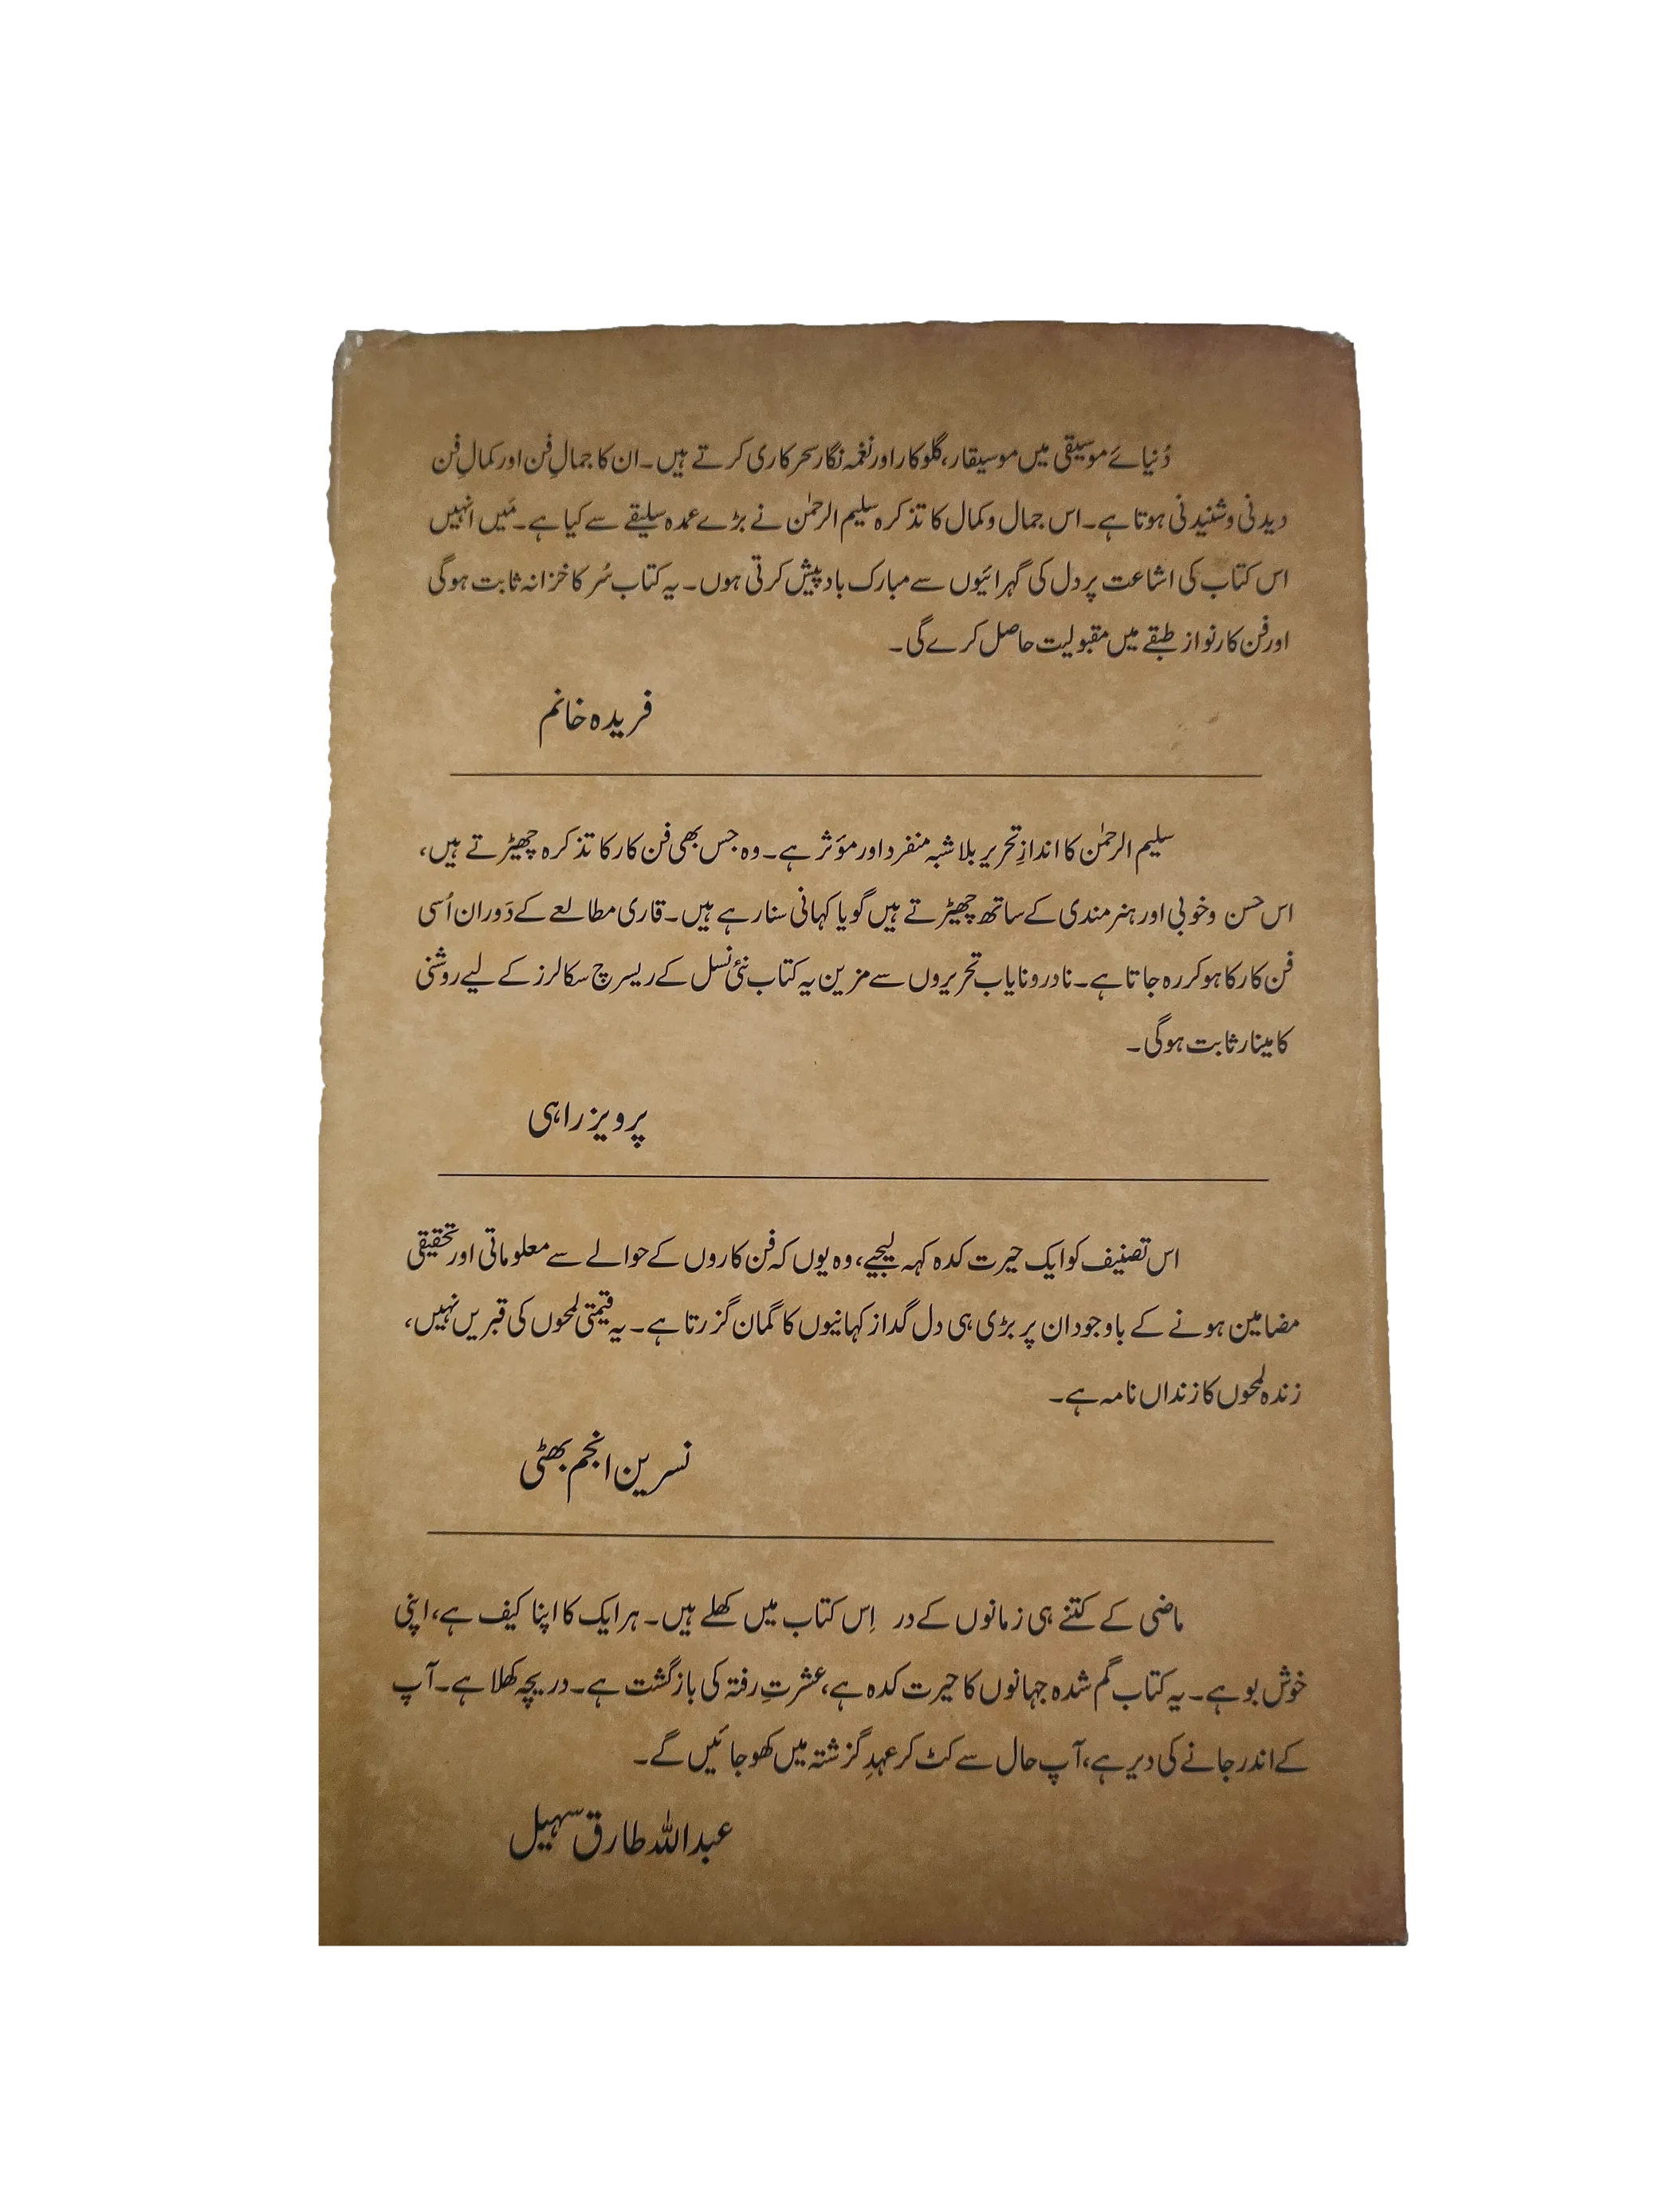 دُنیائے موسیقی میں موسیقار، گلوکار اور نغمہ نگار سحر کاری کرتے ہیں۔ ان کا جمالِ فن اور کمالِ فن
دیدنی و شنیدنی ہوتا ہے۔ اس جمال و کمال کا تذکرہ سلیم الرحمٰن نے بڑے عمدہ سلیقے سے کیا ہے۔ مَیں انہیں
اس کتاب کی اشاعت پر دل کی گہرائیوں سے مبارک باد پیش کرتی ہوں۔ یہ کتاب سُر کا خزانہ ثابت ہوگی
اور فن کار نواز طبقے میں مقبولیت حاصل کرے گی۔
فریدہ خانم
سلیم الرحمٰن کا اندازِ تحریر بلا شبہ منفرد اور مؤثر ہے۔ وہ جس بھی فن کار کا تذکرہ چھیڑتے ہیں،
اس حسن و خوبی اور ہنر مندی کے ساتھ چھیڑتے ہیں گویا کہانی سنا رہے ہیں۔ قاری مطالعے کے دَوران اُسی
فن کار کا ہو کر رہ جاتا ہے۔ نادر و نایاب تحریروں سے مزین یہ کتاب نئی نسل کے ریسرچ سکالرز کے لیے روشنی
کا مینار ثابت ہوگی۔
پرویز راہی
اس تصنیف کو ایک حیرت کدہ کہہ لیجیے، وہ یوں کہ فن کاروں کے حوالے سے معلوماتی اور تحقیقی
مضامین ہونے کے باوجود ان پر بڑی ہی دل گداز کہانیوں کا گمان گزرتا ہے۔ یہ قیمتی لمحوں کی قبریں نہیں،
زندہ لمحوں کا زنداں نامہ ہے۔
نسرین انجم بھٹی
ماضی کے کتنے ہی زمانوں کے در اِس کتاب میں کھلے ہیں۔ ہر ایک کا اپنا کیف ہے، اپنی
خوش بو ہے۔ یہ کتاب گم شدہ جہانوں کا حیرت کدہ ہے، عشرتِ رفتہ کی بازگشت ہے۔ دریچہ کھلا ہے۔ آپ
کے اندر جانے کی دیر ہے، آپ حال سے کٹ کر عہدِ گزشتہ میں کھو جائیں گے۔
عبداللہ طارق سہیل